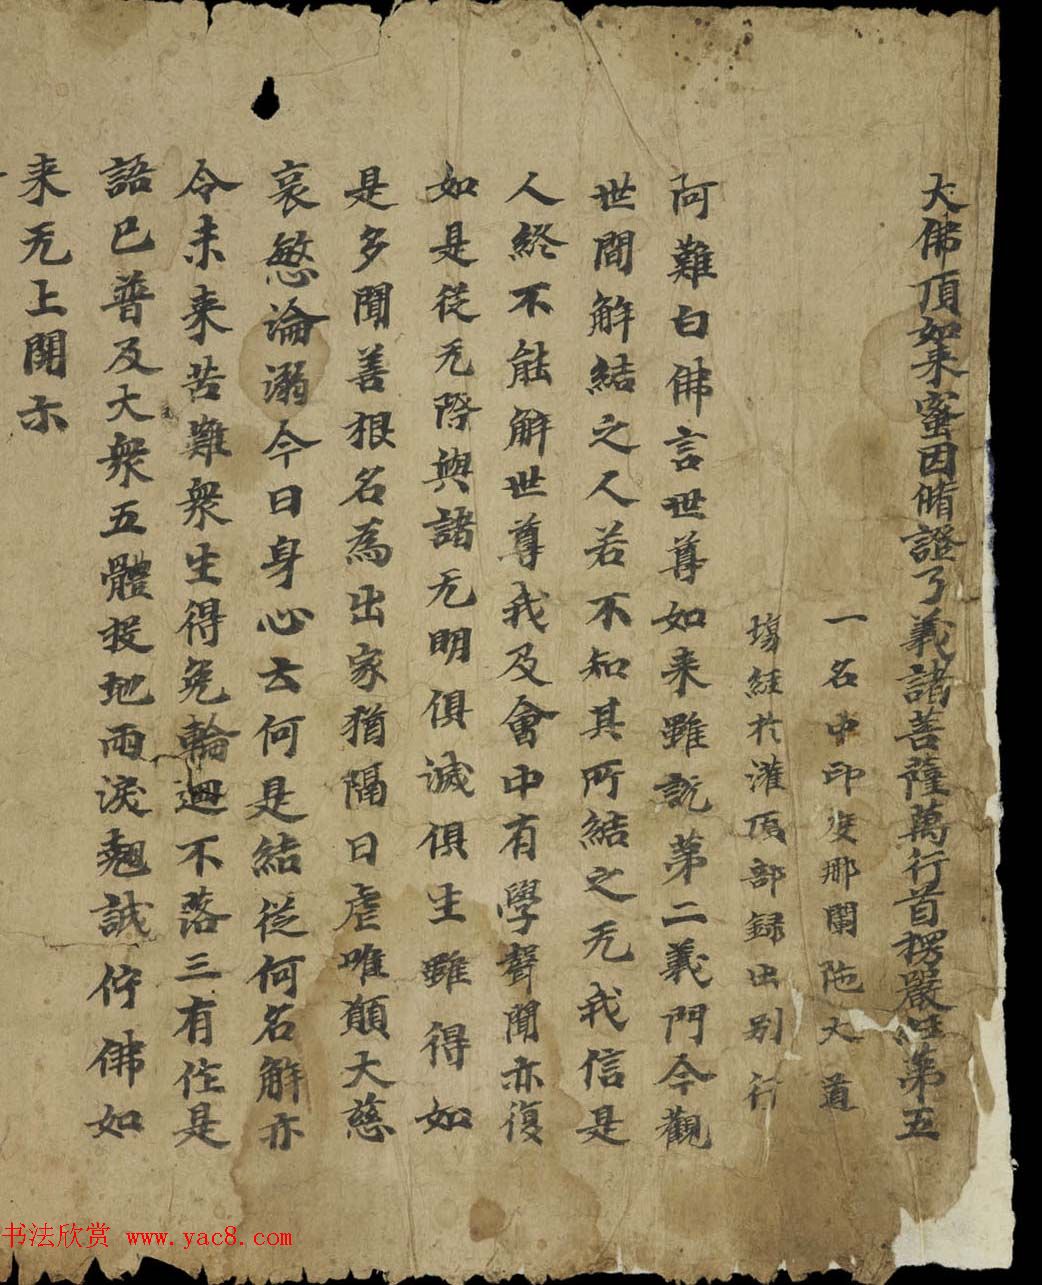 大佛頂如来蜜因脩證了義諸菩薩萬行首楞嚴経第五
一名中印度那闌陁大道
塲經於灌頂部録出别行
阿難白佛言世尊如来雖說第二義門今觀
世間解結之人若不知其所結之无我信是
人終不能解世尊我及會中有學聲聞亦復
如是從无際與諸无明俱滅俱生雖得如
是多聞善根名為出家猶隔日虐唯願大慈
哀愍淪溺今日身心云何是結從何名解亦
令未来苦難衆生得免輪迴不落三有作是
語已普及大衆五體投地雨淚翹誠佇佛如
来无上開示
书法欣赏 www.yac8.com